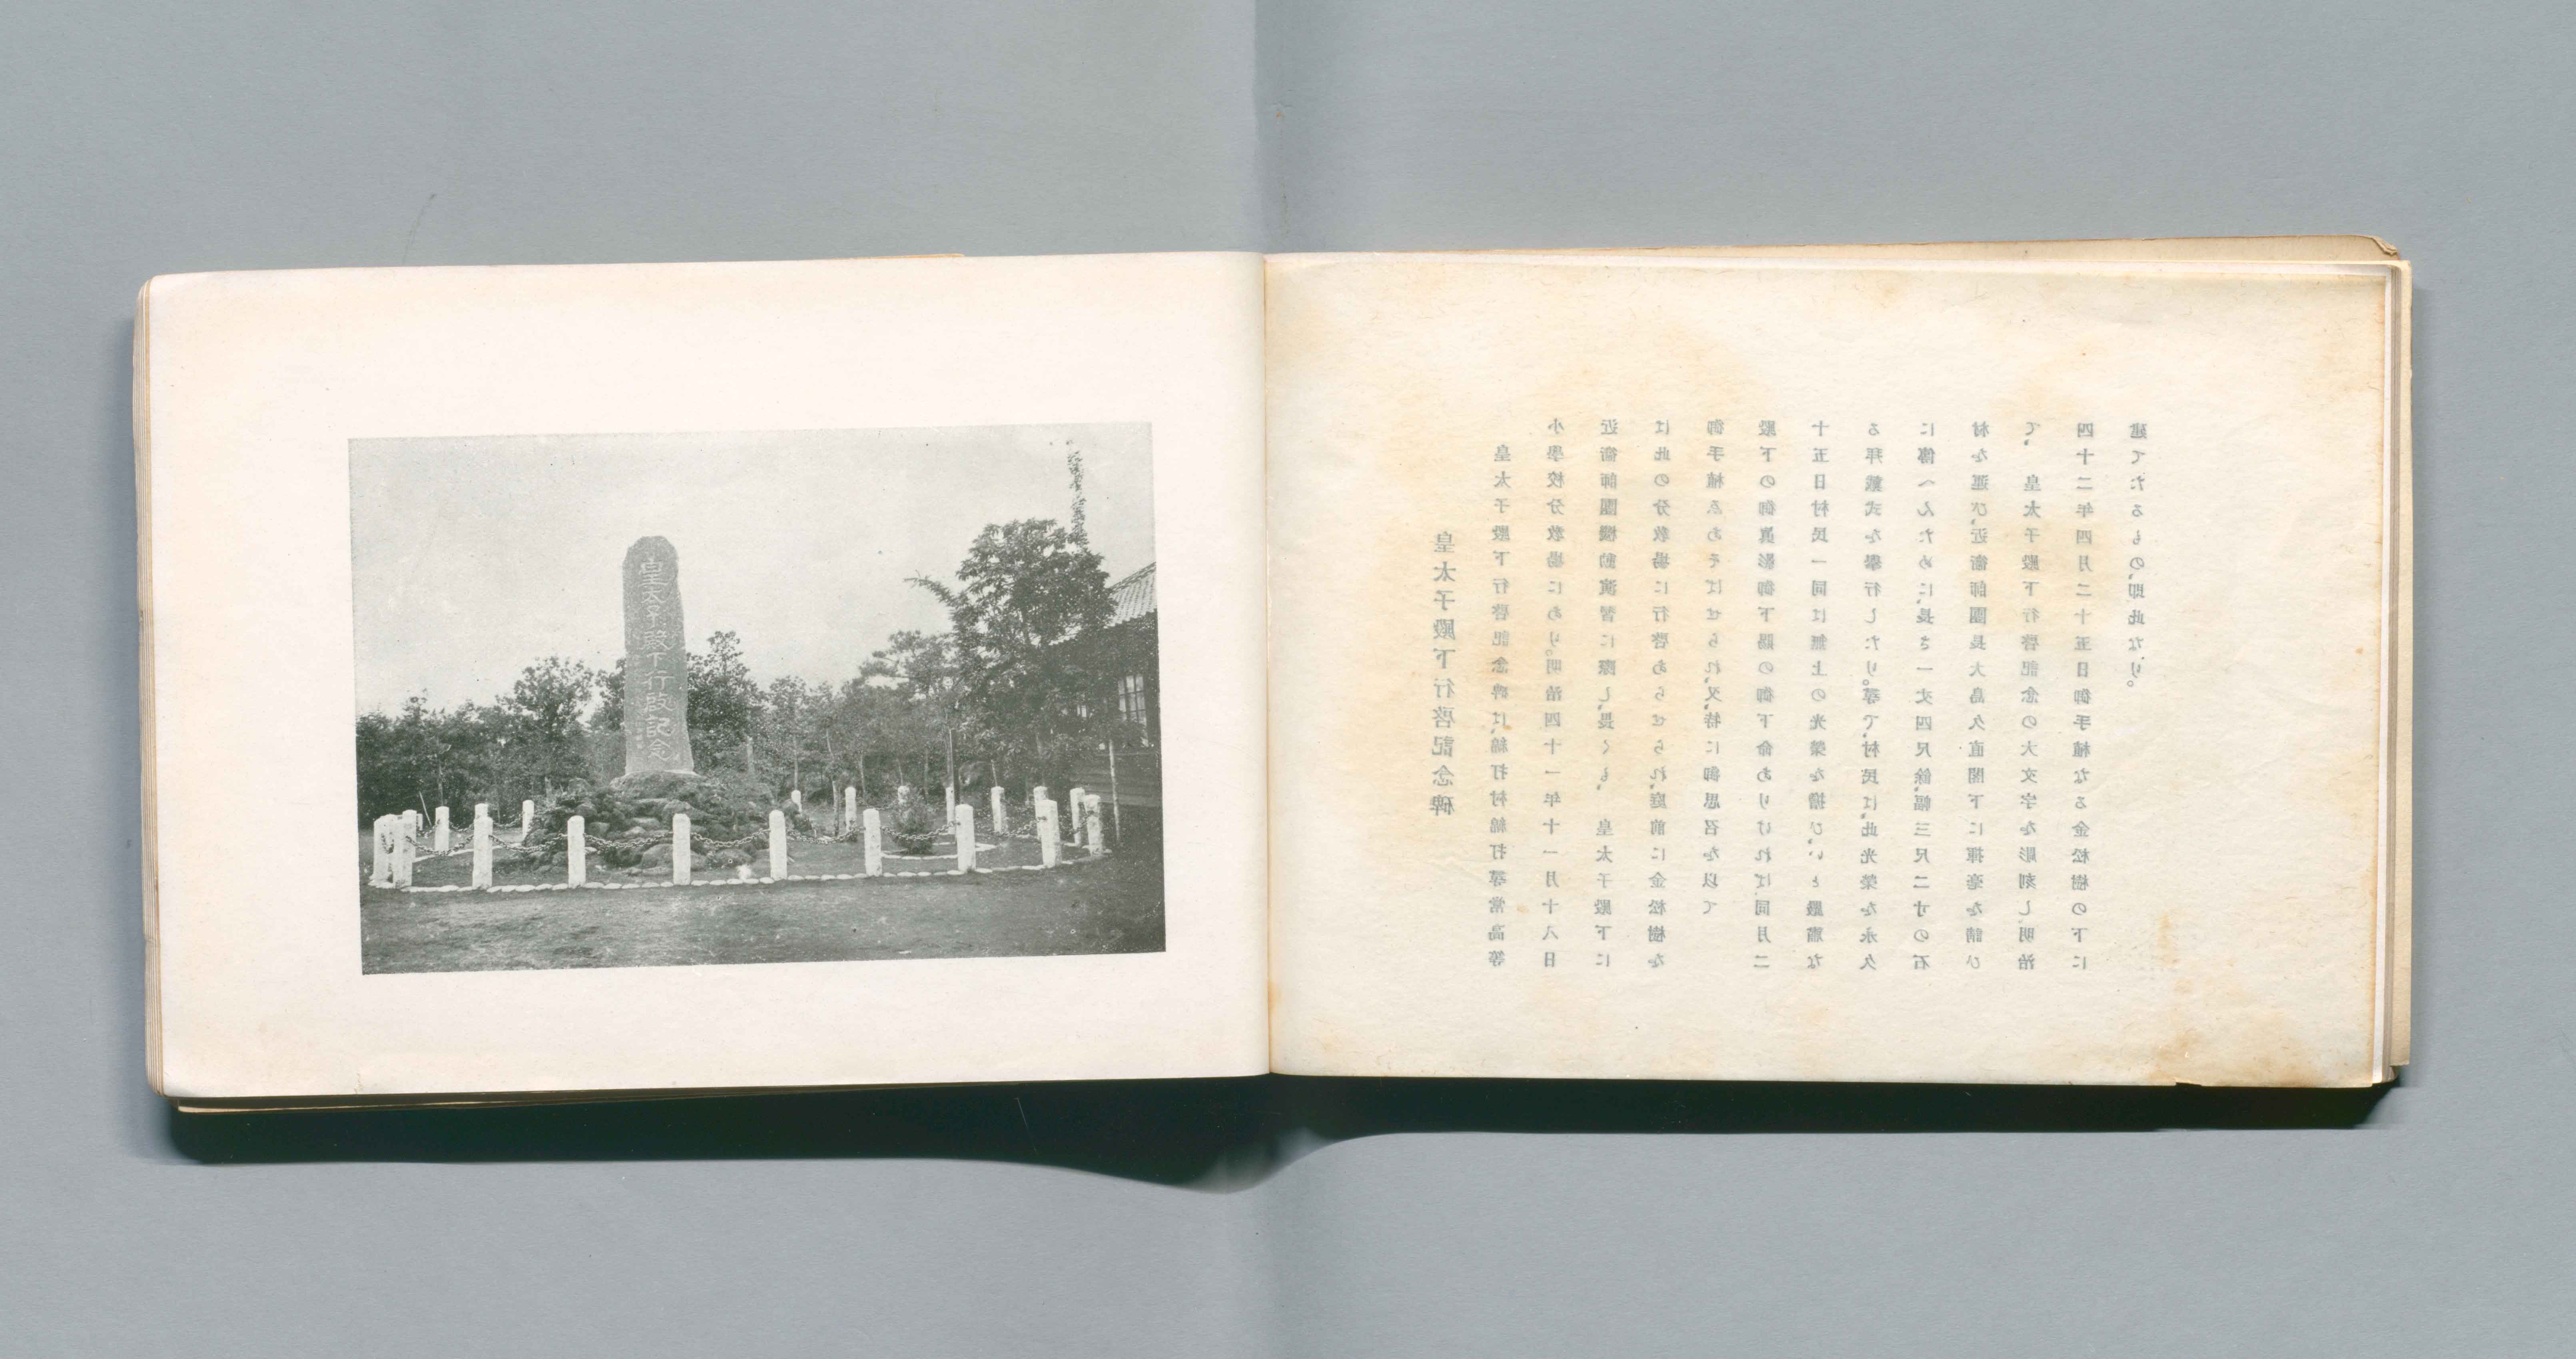 皇太子殿下行啓記念
皇太子殿下行啓記念碑
皇太子殿下行啓記念碑は、綿打村綿打尋常高等
小學校分教場にあり。明治四十一年十一月十八日
近衞師團機動演習に際し、畏くも、皇太子殿下に
は此の分教場に行啓あらせられ、庭前に金松樹を
御手植ゑあそばせられ、又、特に御思召を以て
殿下の御眞影御下賜の御下命ありければ、同月二
十五日村民一同は無上の光榮を擔ひ、いと嚴肅な
る拜戴式を擧行したり。尋で、村民は、此光榮を永久
に傳へんために、長さ一丈四尺餘、幅三尺二寸の石
材を運び、近衞師團長大島久直閣下に揮毫を請ひ
て、皇太子殿下行啓記念の大文字を彫刻し、明治
四十二年四月二十五日御手植なる金松樹の下に
建てたるもの、即此なり。